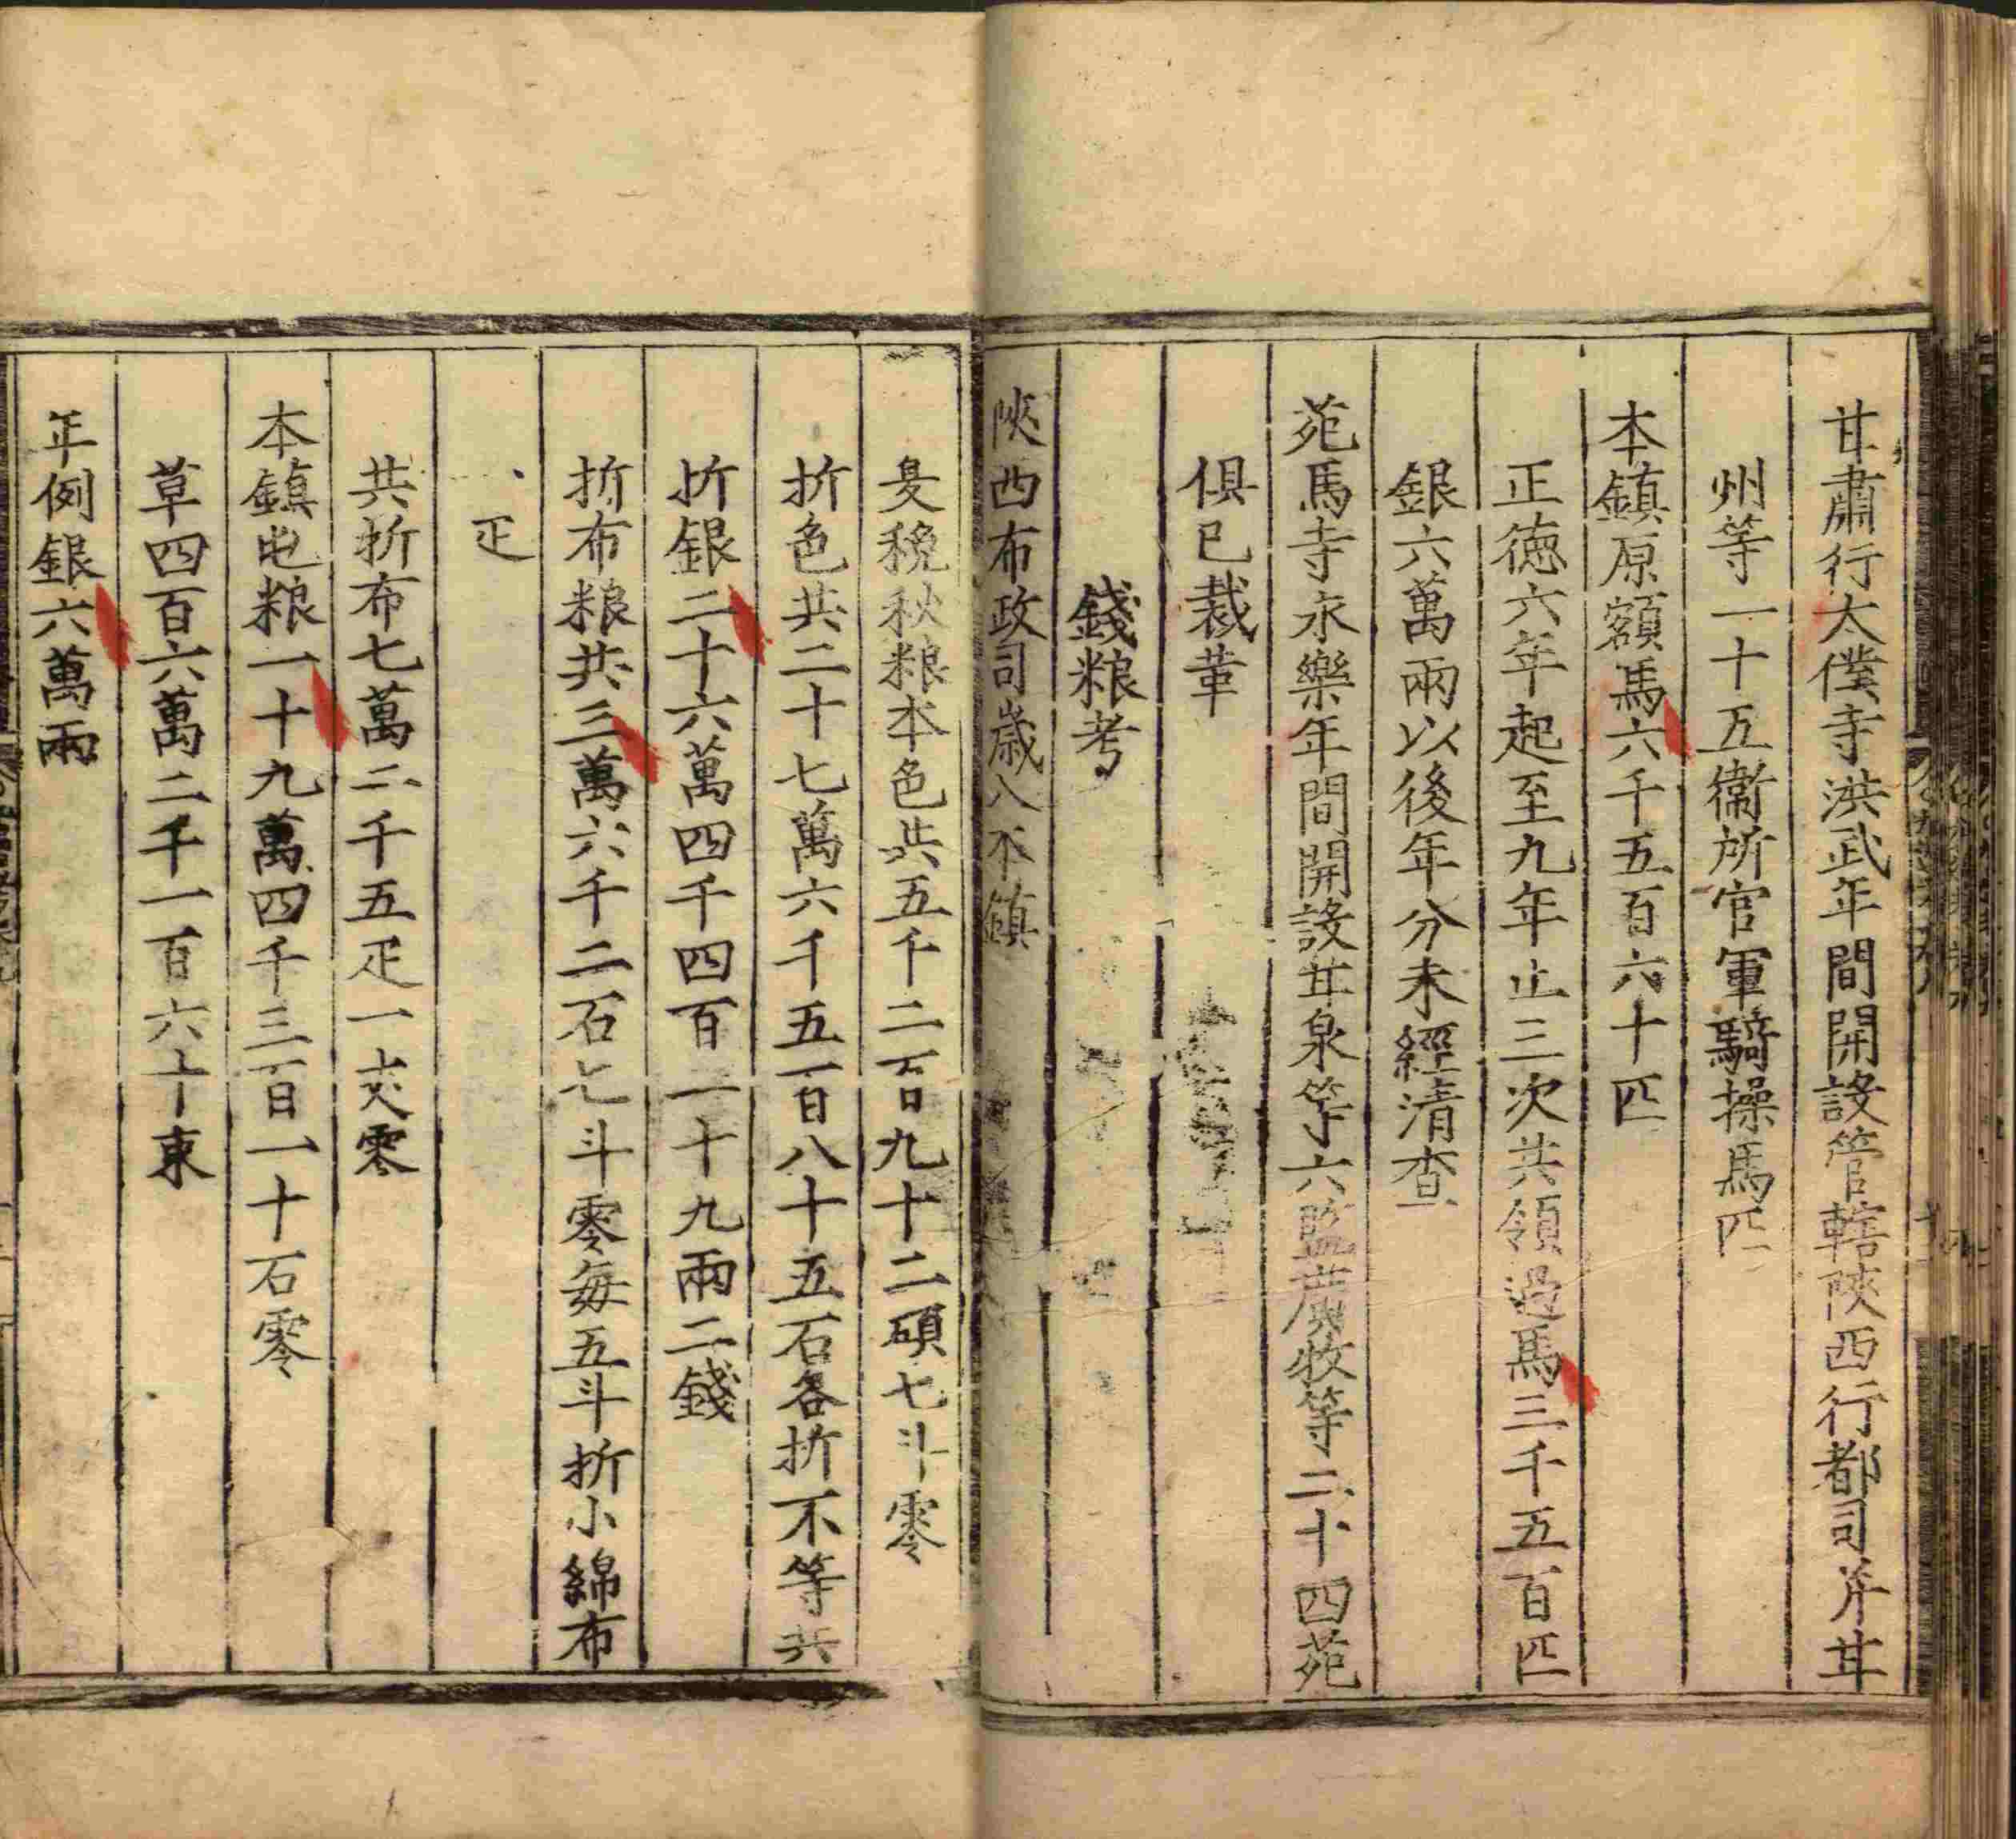 甘肅行太僕寺洪武年間開設管轄陝西行都司并甘
州等一十五衞所官軍騎操馬匹
本鎮原額馬六千五百六十匹
正德六年起至九年止三次共領過馬三千五百匹
銀六萬兩以後年分未經清查
苑馬寺永樂年間開設甘泉等六監廣牧等二十四苑
俱已裁革
錢粮考
陝西布政司歲入本鎮
夏稅秋粮本色共五千二百九十二碩七斗零
折色共二十七萬六千五百八十五石各折不等共
折銀二十六萬四千四百一十九兩二錢
折布粮共三萬六千二石七斗零每五斗折小綿布
一疋
共折布七萬二千五疋一丈零
本鎮屯粮一十九萬四千三百一十石零
草四百六萬二千一百六十束
年例銀六萬兩